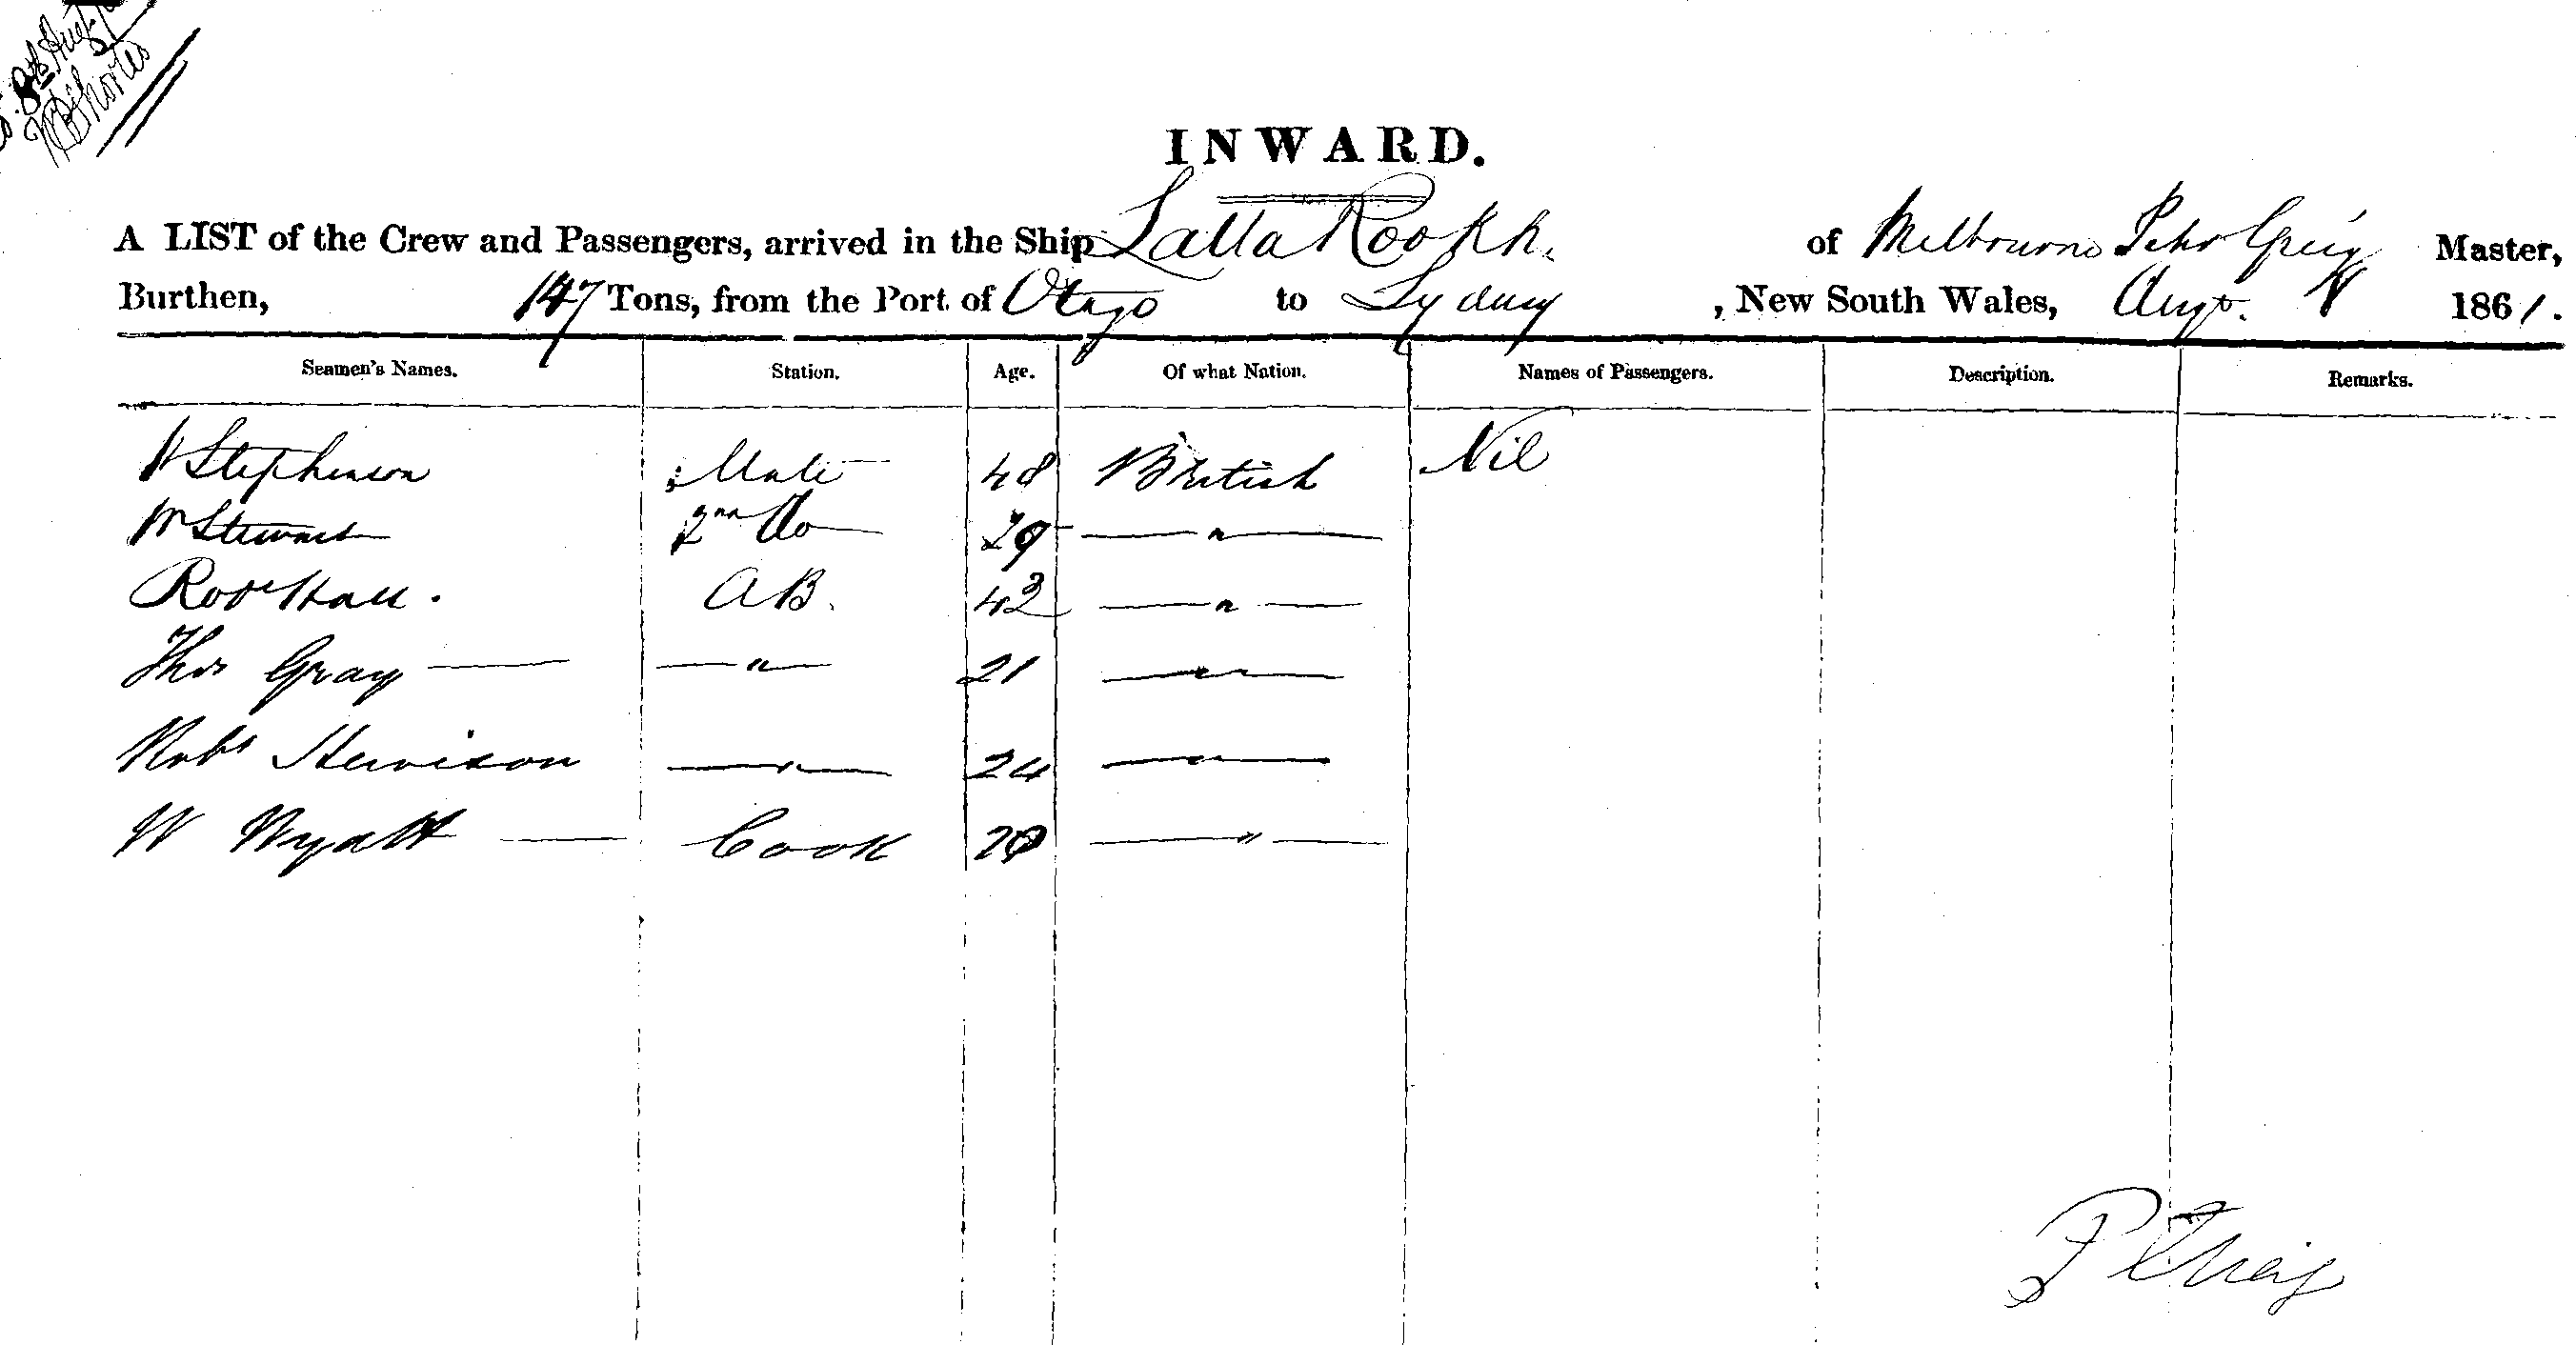 8th Aug
INWARD.
A LIST of the Crew and Passengers, arrived in the Ship Lalla Rookh. of Melbourne Petr Greig Master,
Burthen, 147 Tons, from the Port of Otago to Sydney, New South Wales, Augt. 8 1861.
Seamen's Names. Station. Age. Of what Nation. Names of Passengers. Description. Remarks.
W Stephenson Mate 48 British Nil
W Stewart 2nd Do 29 — " —
Robt Hall. A B. 42 — " —
Thos Gray — — " — 21 — " —
Robt Hewison — " — 24 — " —
W Wyatt — Cook 20 — " —
P Greig